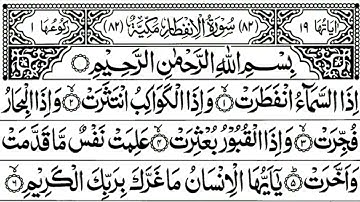 اٰيَاتُهَا ١٩ (٨٢) سُوْرَةُ الْاِنْفِطَارِ مَكِّيَّةٌ (٨٢) رُكُوْعُهَا ١
بِسْمِ اللّٰهِ الرَّحْمٰنِ الرَّحِيْمِ
اِذَا السَّمَآءُ انْفَطَرَتْ ۙ﴿١﴾ وَاِذَا الْكَوَاكِبُ انْتَثَرَتْ ۙ﴿٢﴾ وَاِذَا الْبِحَارُ
فُجِّرَتْ ۙ﴿٣﴾ وَاِذَا الْقُبُوْرُ بُعْثِرَتْ ۙ﴿٤﴾ عَلِمَتْ نَفْسٌ مَّا قَدَّمَتْ
وَاَخَّرَتْ ؕ﴿٥﴾ يٰٓاَيُّهَا الْاِنْسَانُ مَا غَرَّكَ بِرَبِّكَ الْكَرِيْمِ ۙ﴿٦﴾